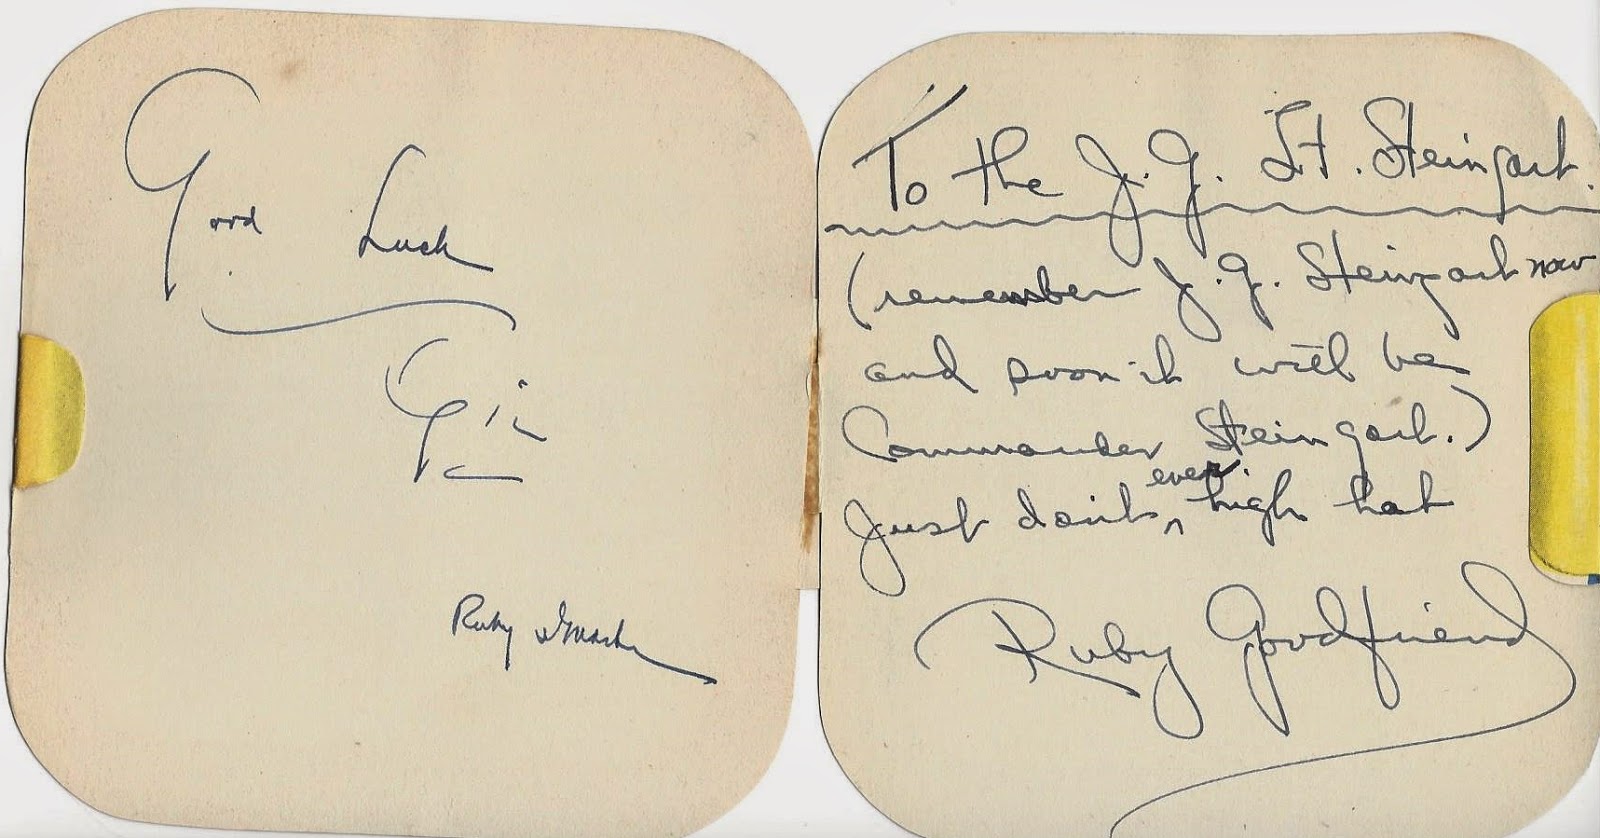 Good Luck
Gin
Ruby
To the J.G. Lt. Steingart.
(remember J.G. Steingart now
and soon it will be
Commander Steingart.)
Just don't ever high hat
Ruby Goodfriend